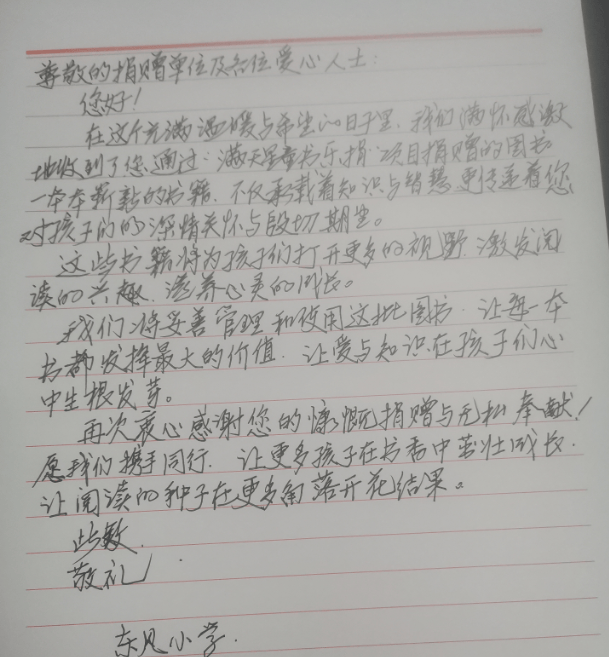 尊敬的捐赠单位及各位爱心人士:
您好!
在这个充满温暖与希望的日子里,我们满怀感激
地收到了您通过"满天星童书乐捐"项目捐赠的图书
一本本崭新的书籍,不仅承载着知识与智慧更传递着您
对孩子们的深情关怀与殷切期望。
这些书籍将为孩子们打开更多的视野,激发阅
读的兴趣,滋养心灵的成长。
我们将妥善管理和使用这批图书,让每一本
书都发挥最大的价值,让爱与知识在孩子们心
中生根发芽。
再次衷心感谢您的慷慨捐赠与无私奉献!
愿我们携手同行,让更多孩子在书香中茁壮成长,
让阅读的种子在更多角落开花结果。
此致
敬礼
东风小学.